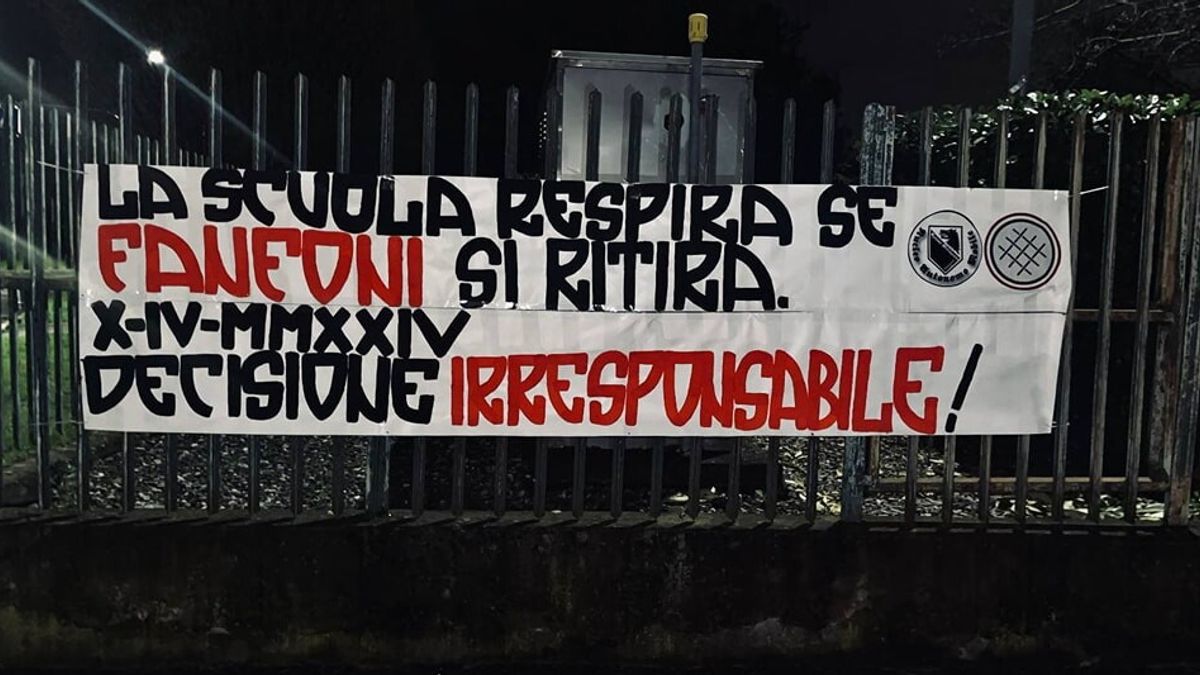 LA SCUOLA RESPIRA SE
FANFONI SI RITIRA.
X-IV-MMXXIV
DECISIONE IRRESPONSABILE!